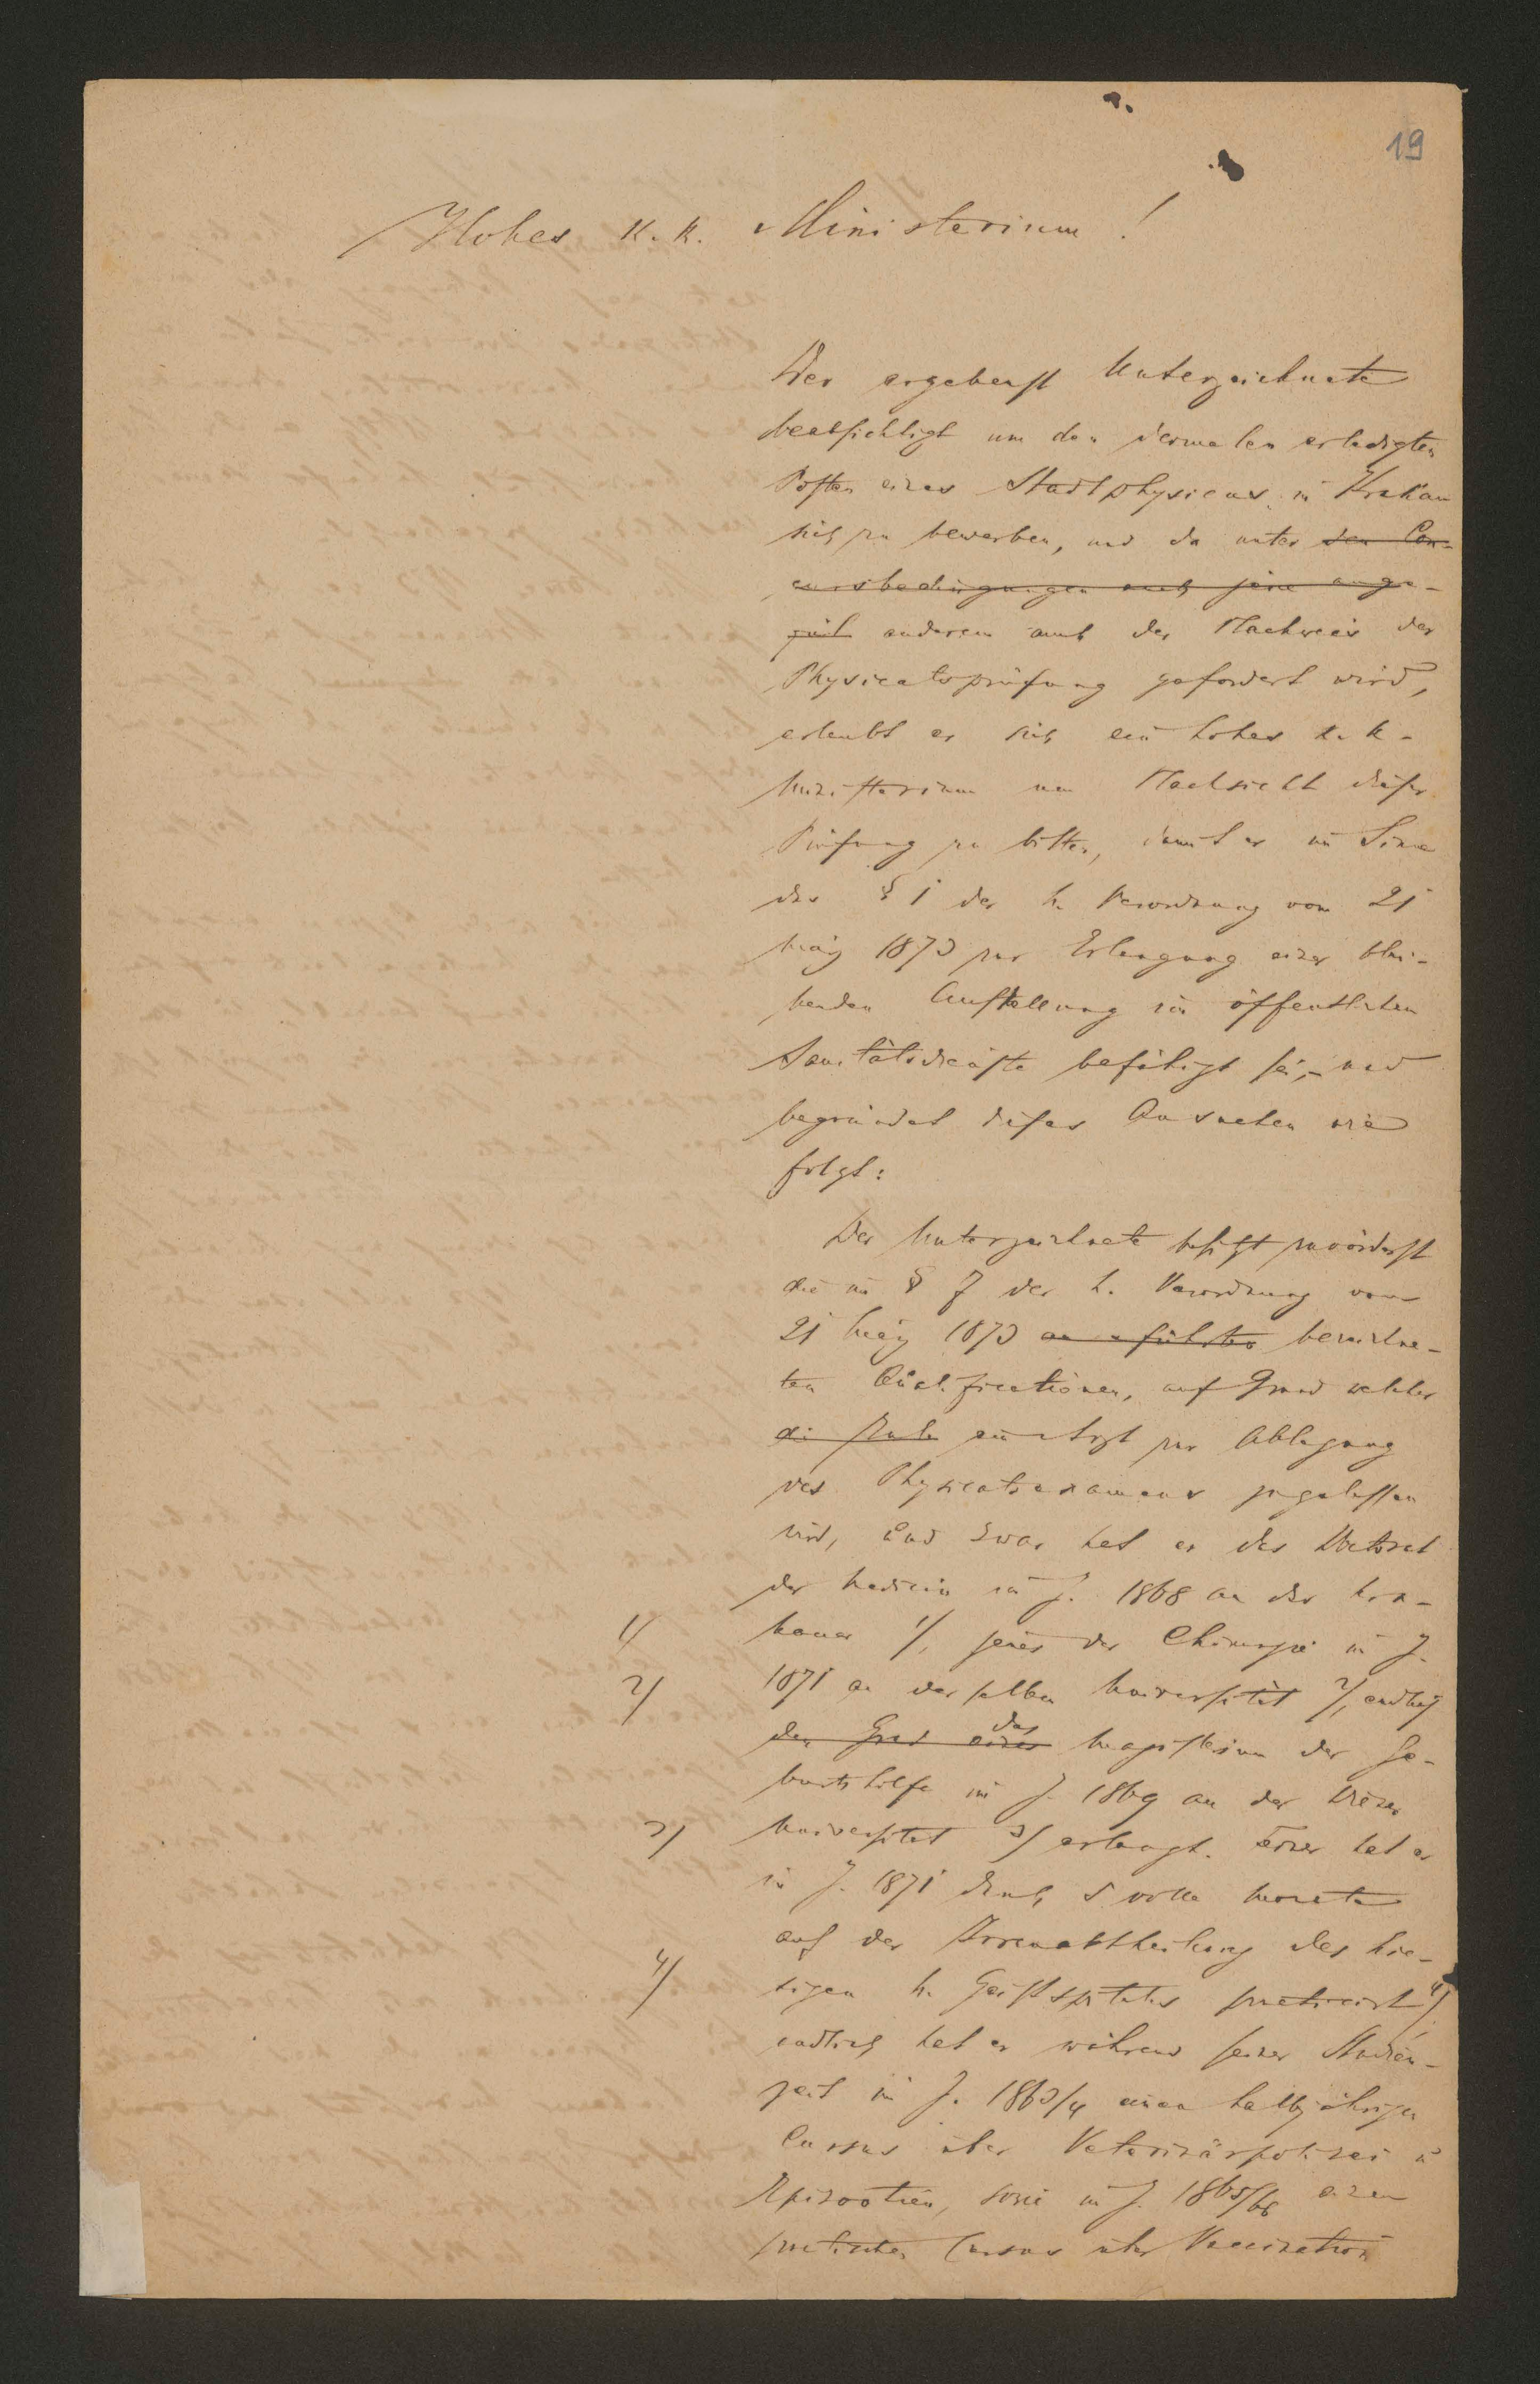 19
Hohes K. K. Ministerium!
Der ergebenst Unterzeichnete
beabsichtigt um den dermalen erledigten
Posten eines Stadtphysicus in Krakau
sich zu bewerben, und da unter den Con-
cursbedingungen auch jene
anderem auch der Nachweis der
Physicatsprüfung gefordert wird,
erlaubt er sich ein hohes k. k.
Ministerium um Nachsicht dieser
Prüfung zu bitten, damit er im Sinne
des § 1 der h. Verordnung vom 21
März 1873 zur Erlangung einer blei-
benden Anstellung im öffentlichen
Sanitätsdienste befähigt sei, und
begründet dieses Ansuchen wie
folgt:
Der Unterzeichnete besitzt zuvörderst
die im § 7 der h. Verordnung vom
21 März 1873 angeführten bezeichne-
ten Qualificationen, auf Grund welcher
ein Arzt zur Ablegung
des Physicatsexamens zugelassen
wird, und zwar hat er das Doctorat
der Medicin im J. 1868 an der Kra-
1/ kauer 1/, jenes der Chirurgie im J.
2/ 1871 an derselben Universität 2/, endlich
den Grad eines das Magisterium der Ge-
burtshilfe im J. 1869 an der Wiener
3/ Universität 3/ erlangt. Ferner hat er
im J. 1871 durch 5 volle Monate
auf der Irrenabtheilung des hie-
4/ sigen h. Geistspitales practicirt 4/
endlich hat er während seiner Studien-
zeit im J. 1863/4 einen halbjährigen
Cursus über Veterinärpolizei u
Epizootien, sowie im J. 1865/66 einen
practischen Cursus über Vaccination